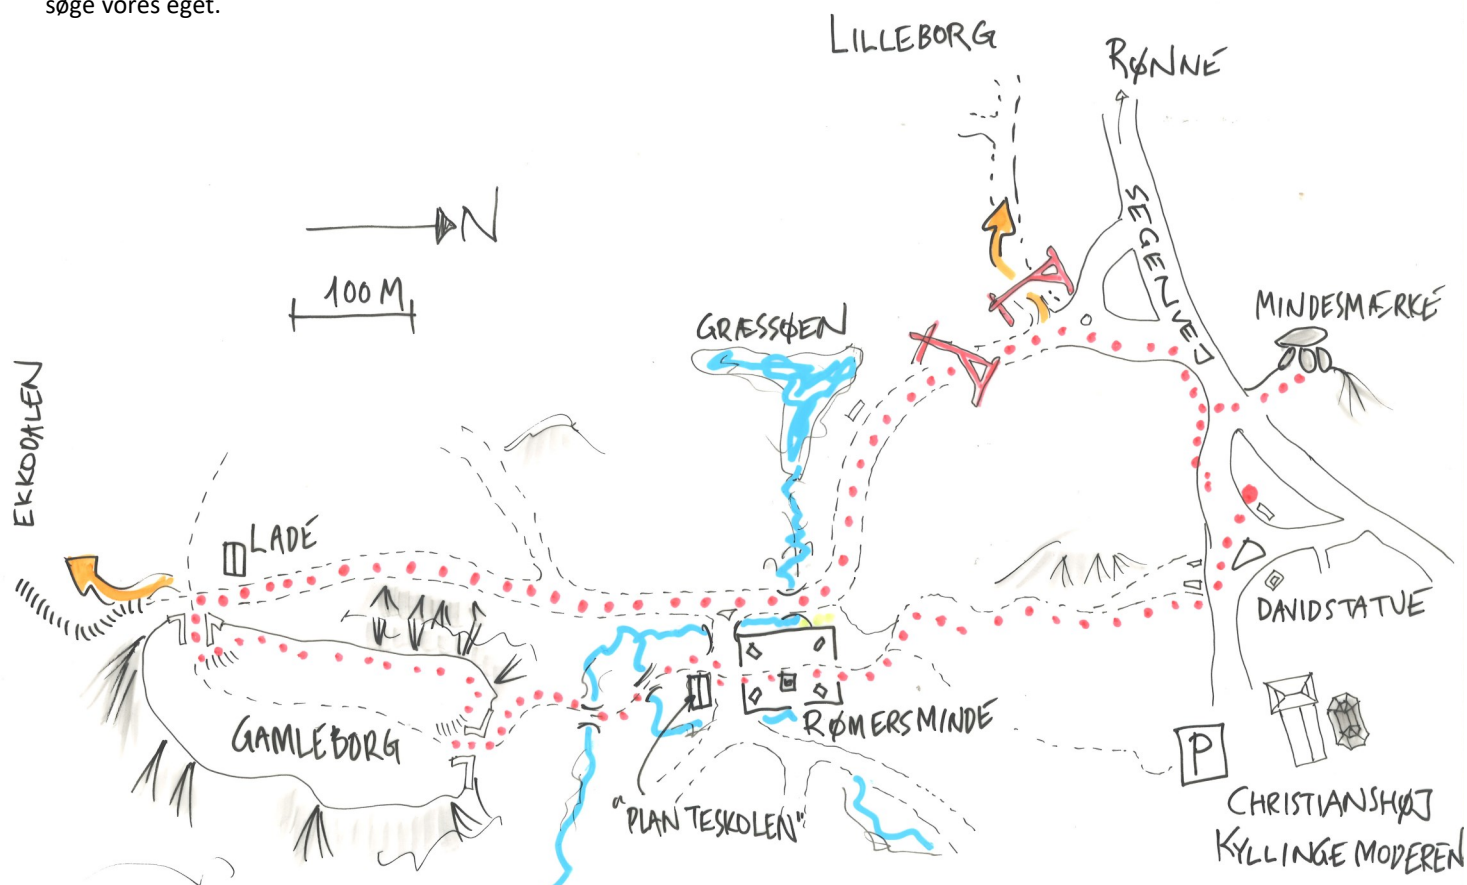 søge vores eget.
LILLEBORG
RØNNE
N
100 M
SEGENVEJ
MINDESMÆRKE
GRÆSSØEN
EKKODALEN
LADE
DAVIDSTATUE
GAMLEBORG
RØMERSMINDE
P
"PLANTESKOLEN"
CHRISTIANSHØJ
KYLLINGEMODEREN